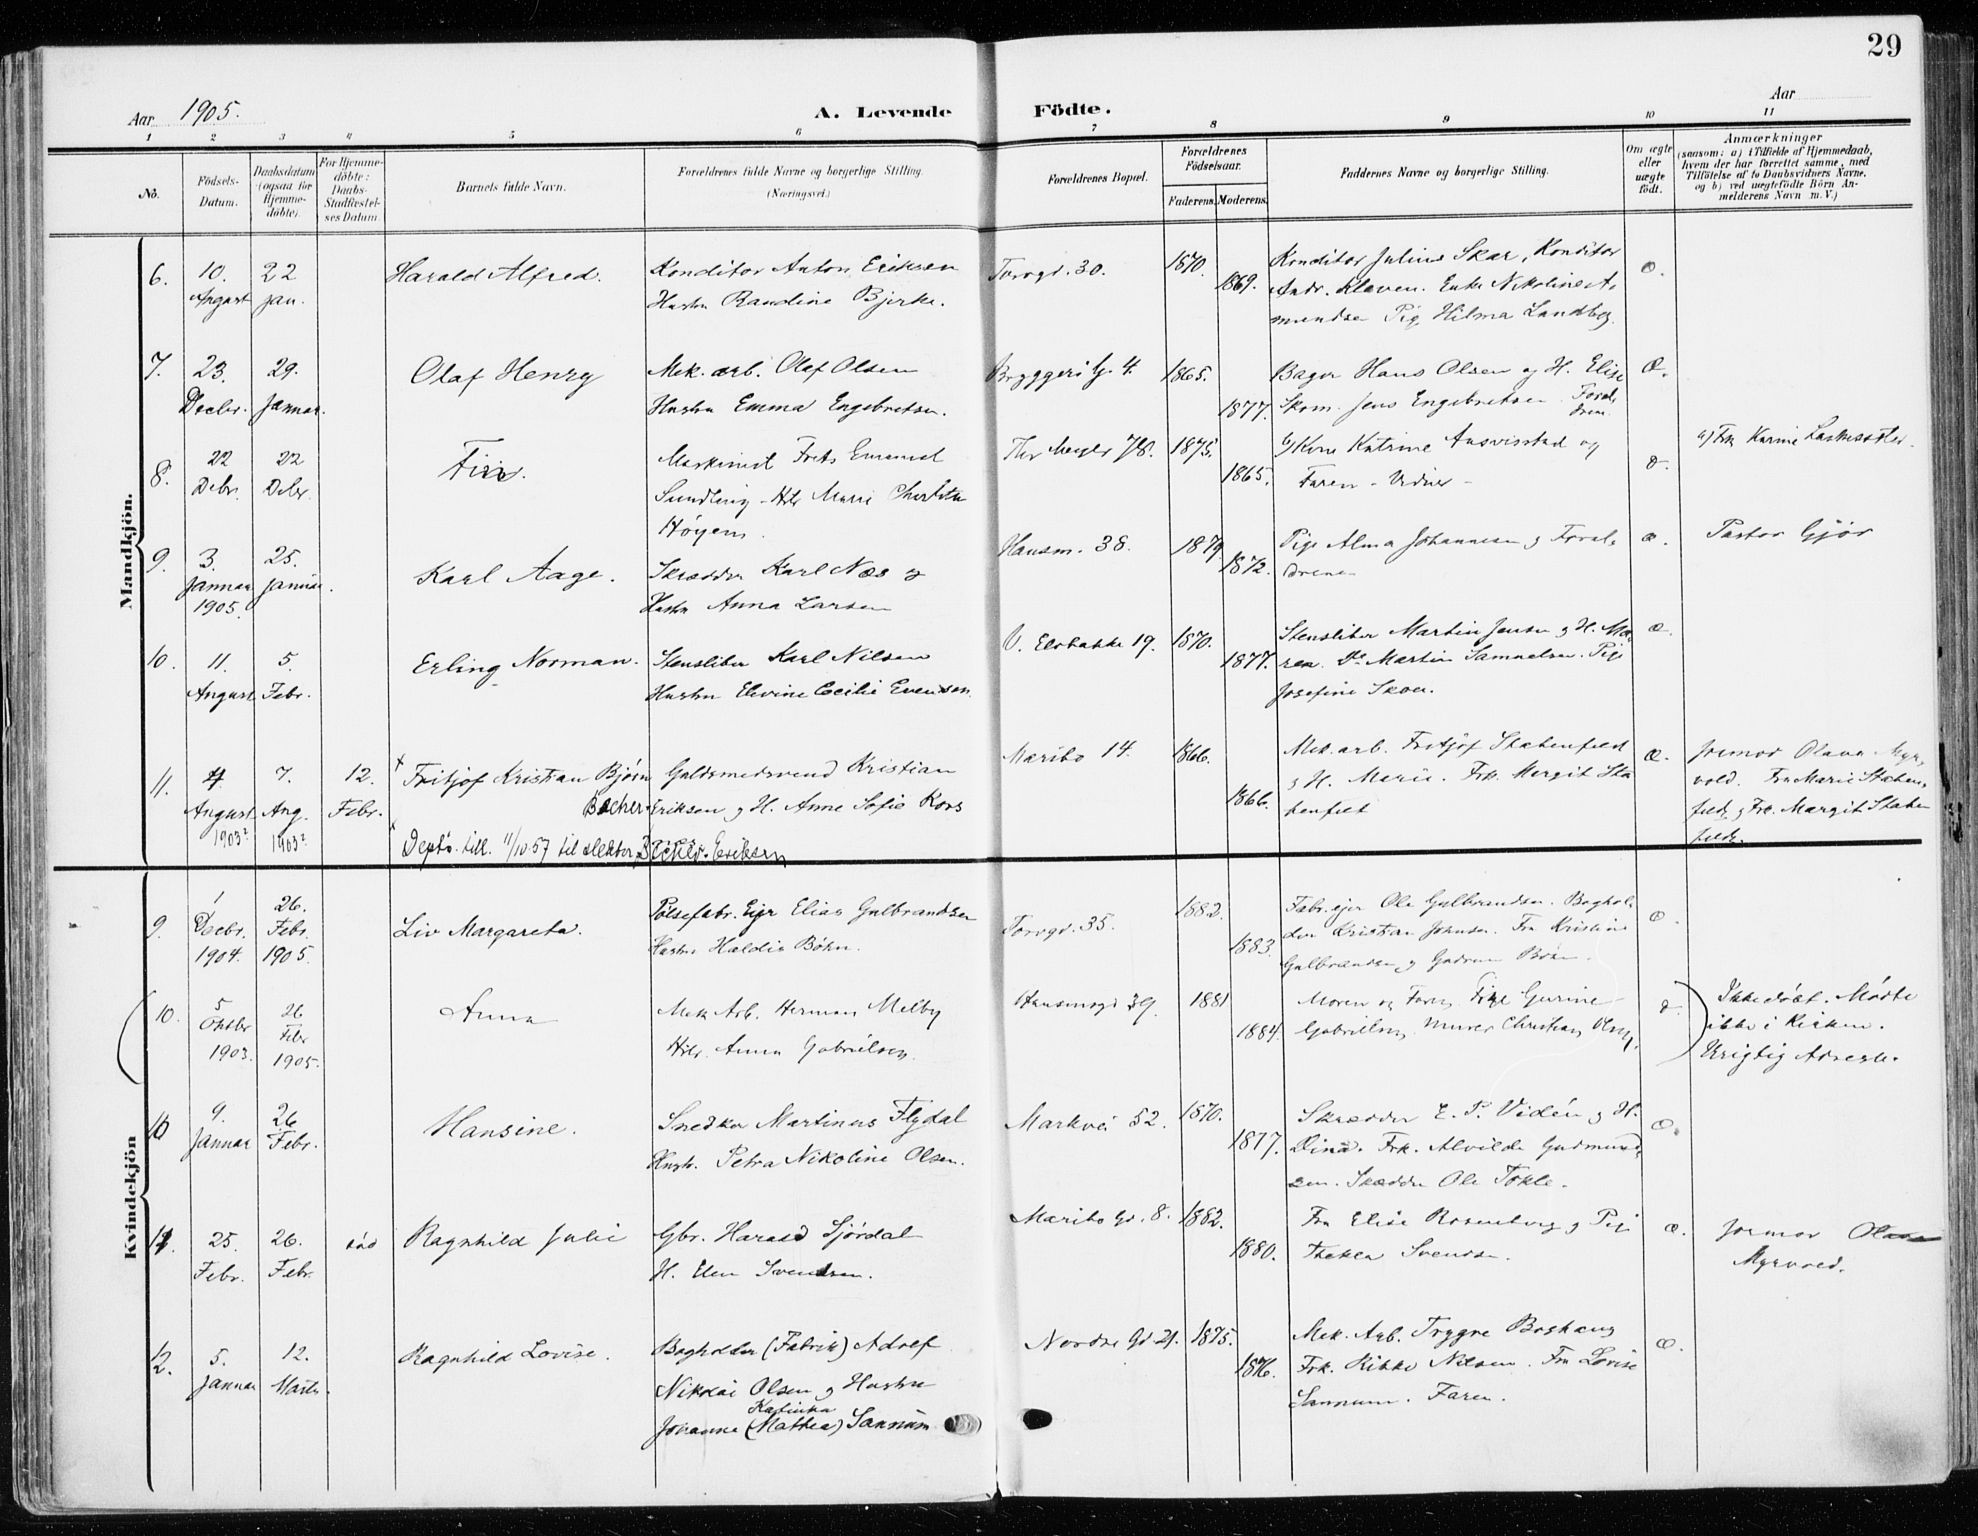 29
Aar 1905.
A. Levende Födte.
Aar
1 2 3 4 5 6 7 8 9 10 11
No.
Födsels-Datum.
Daabsdatum (ogsaa for Hjemme-döbte).
For Hjemme-döbte: Daabs-Stadfæstel-ses Datum
Barnets fulde Navn.
Forældrenes fulde Navne og borgerlige Stilling. (Næringsvei.)
Forældrenes Bopæl.
Forældrenes Födselsaar.
Faderens. Moderens.
Faddernes Navne og borgerlige Stilling.
Om ægte eller uægte födt.
Anmærkninger
(saasom: a) i Tilfælde af Hjemmedaab, hvem der har forrettet samme, med Tilföielse af to Daabsvidners Navne. og b) ved uægtefödte Börn An-melderens Navn m. V.)
Mandkjön.
6. 10. August 22 Jan. Harald Alfred.
Konditor Anton Eriksen
Hustru Randine Bjerke.
Torvgd. 30. 1870. 1869.
Konditor Julius Skar, Konditor
Andr. Kleven. Enke Nikoline A-
mundsen Pige Hilma Landbg.
7. 23. Decbr. 29. Januar. Olaf Henry
Mek. arb. Olaf Olsen
Hustru Emma Engebretsen.
Bryggerig. 4. 1865. 1877.
Bager Hans Olsen og H. Elise
Skom. Jens Engebretsen. Foræl-
drene.
Æ.
8. 22 Debr. 22 Debr. Finn.
Maskinist Frits Emanuel
Sundling - Htr Marie Charlotte
Höyem.
Thv Meyers 78. 1875. 1865.
Kone Katrine og
Faren - Vidner -
a) Frk Karine
9. 3. Januar 1905. 25. Januar. Karl Aage.
Skrædder Karl Næs og
Hustru Anna Larsen
Hausm. 38. 1879 1872.
Pige Alma Johannesen og Foræl-
drene
æ.
Pastor Gjör
10. 11. August 5. Febr. Erling Norman.
Stensliber Karl Nilsen
Hustru Elevine Cecilie Evensen.
V. Elvbakke 19. 1870. 1877.
Stensliber Martin Jensen og H. Ma-
ren. Do Martin Samuelsen. Pige
Josefine Skoen.
æ.
11. 4 August 1903? 7. Aug. 1903? 12. Febr. Fritjof Kristian Bjørn Bøcher
Guldsmedsvend Kristian
Eriksen og H. Anne Sofie Kors
Maribo 14. 1866. 1866.
Mek. arb. Fritjof Stabenfeldt
og H. Marie. Frk. Margit Sta
benfelt
Æ.
Jormor Olava Myr-
vold. Fru Marie Staben-
feldt og Frk. Margit Staben
feldt.
Depts. till. 11/10.57 til slektsn. Bøcher-Eriksen
Kvindekjön
9. 1 Decbr. 1904. 26. Febr. 1905. Liv Margareta.
Pölsefabr. Eier Elias Gulbrandsen
Hustru Haldis Böhn.
Torvgd. 35. 1882. 1883.
Fabr. ejer Ole Gulbrandsen. Boghol-
der Kristian Johnsen. Fru Kristine
Gulbrandsen og Gudrun Böhn.
10. 5 Oktbr 1903. 26 Febr 1905. Anna
Mek Arb. Herman Melby
Htr. Anna Gabrielsen.
Hausmsgd 39. 1881 1884.
Moren og Faren, Pige Gurine
Gabrielsen, Murer Christian Olsen.
Ikke döbt. Mödte
ikke i Kirken.
Urigtig Adresse.
10 9. Januar 26 Febr. Hansine.
Snedker Martinus Flydal
Hustr. Petra Nikoline Olsen.
Markvei 52. 1870. 1877.
Skrædder E. P. Vidén og H.
Dina. Frk. Alvilde Gudmund-
sen. Skrædder Ole Tokle.
Æ.
11 25. Febr. 26. Febr. död Ragnhild Julie
Gbr. Harald Sjördal
H. Elen Svendsen.
Maribo Gd. 8. 1882. 1880.
Fru Elise Rosenborg og Pige
Thekla Svendsen.
æ.
Jormor Olava
Myrvold.
12. 5. Januar 12. Marts. Ragnhild Lovise.
Bogholder (Fabrik) Adolf
Nikolai Olsen og Hustru
Katinka
Johanne (Mathea) Sannum
Nordre Gd 21. 1875. 1876.
Mek. Arb. Trygve Boshaug
Frk. Rikke Nilsen. Fru Lovise
Sannum. Faren.